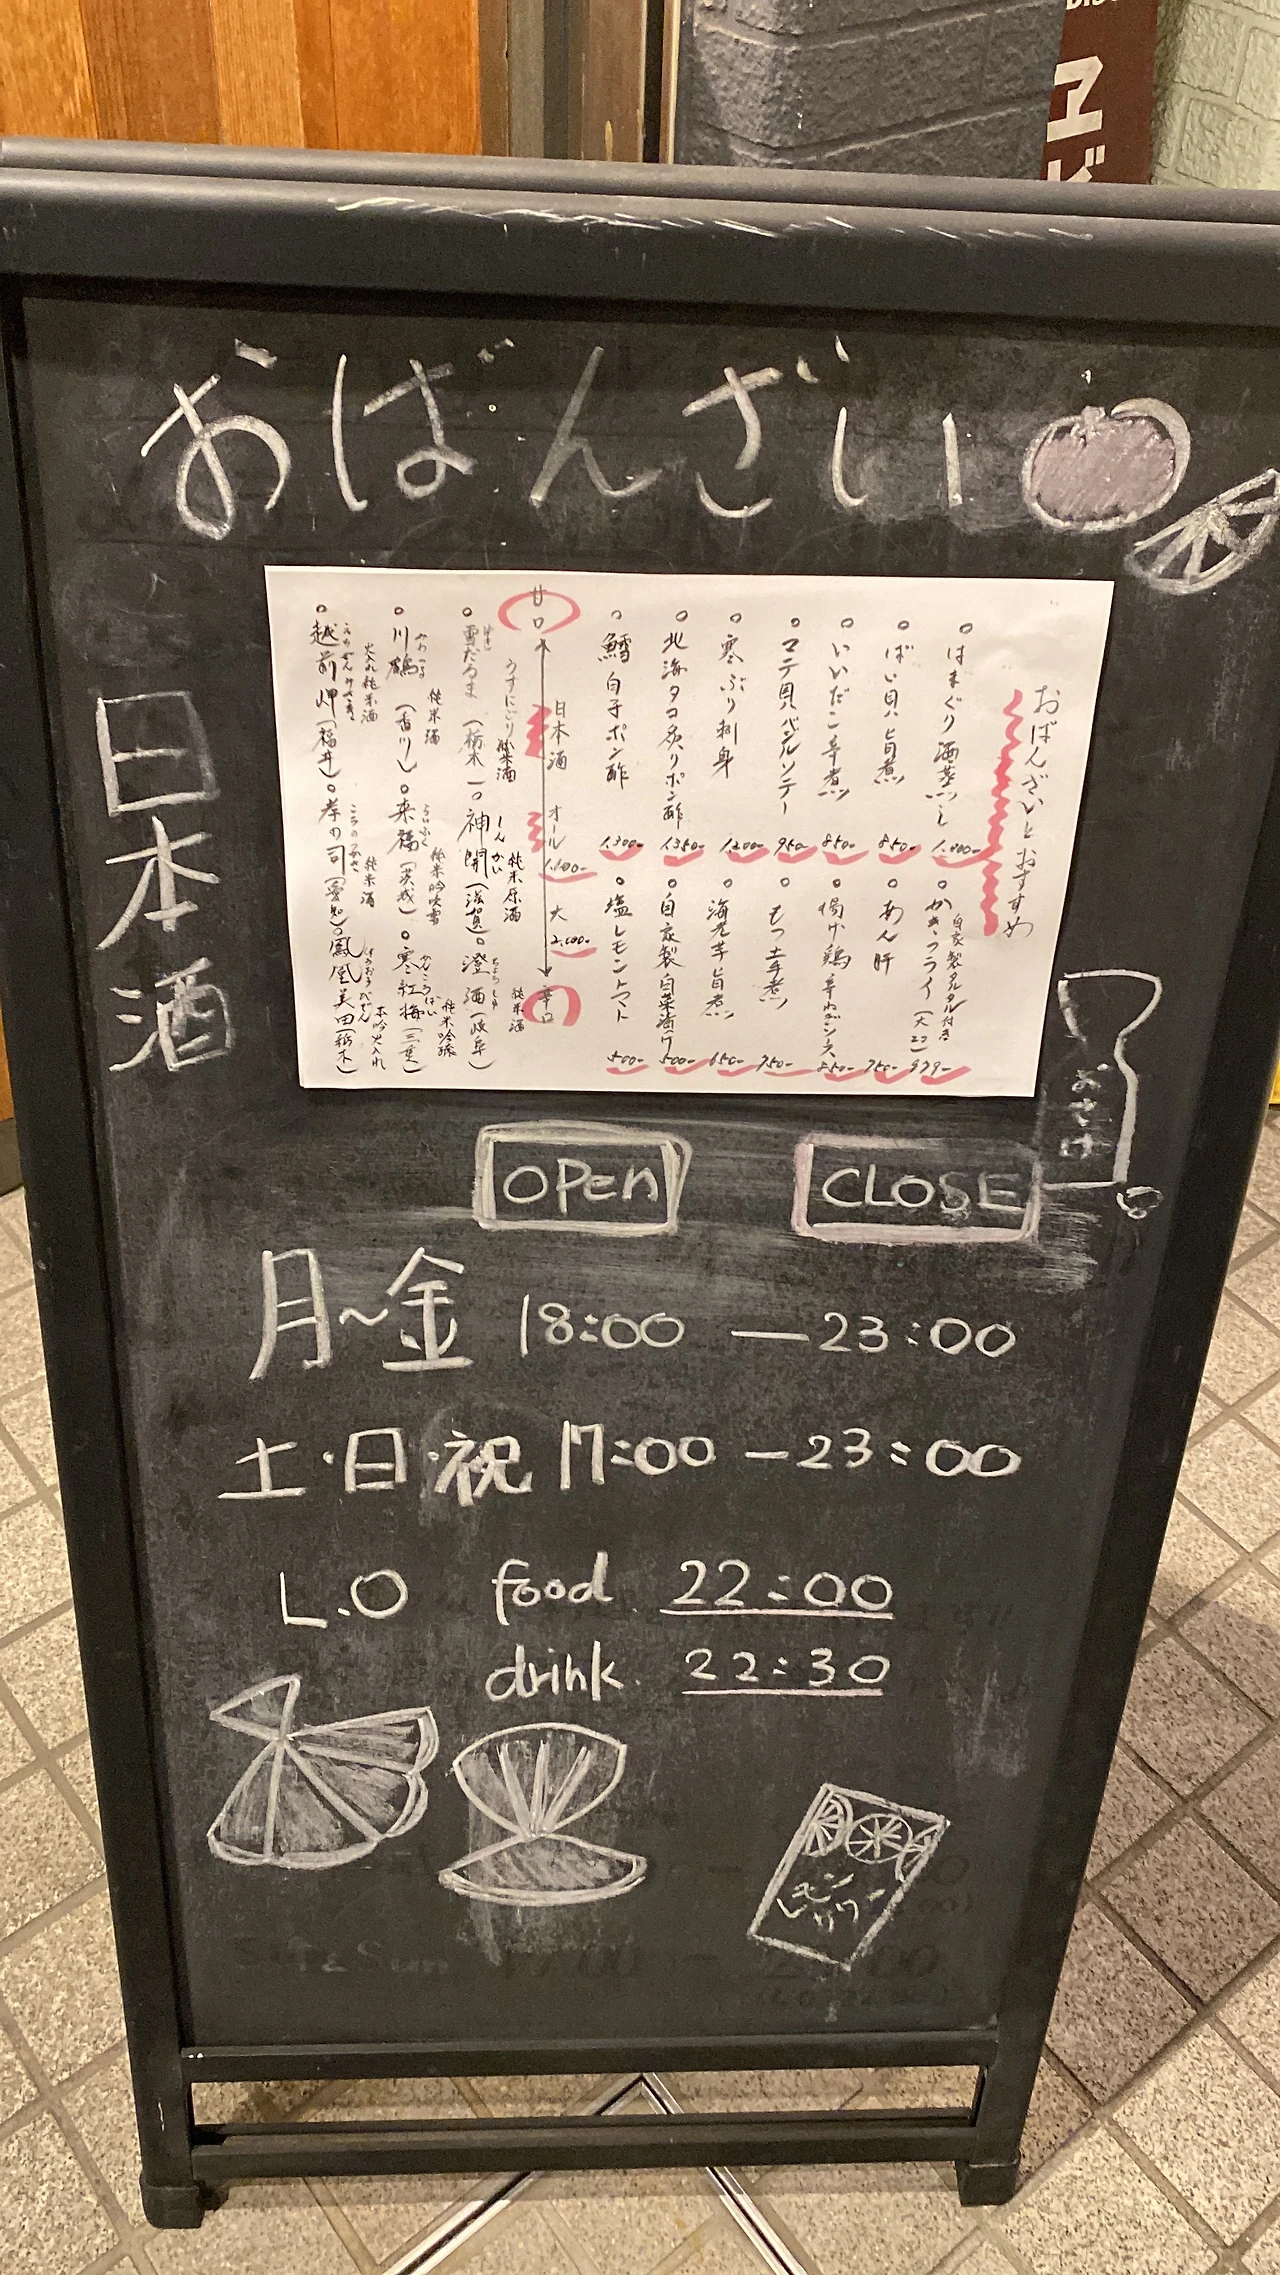 ヱビ
おばんざい
日本酒
おばんざいとおすすめ
はまぐり酒蒸し 1,300-
ばい貝旨煮 850-
いいだこ辛煮 850-
マテ貝バジルソテー 950-
寒ぶり刺身 1,200-
北海タコ炙りポン酢 1,350-
鱈白子ポン酢 1,300-
自家製タルタル付き
かきフライ(大2コ) 979-
あん肝 750-
揚げ鶏辛ねぎソース 850-
もつ土手煮 750-
海老芋旨煮 650-
自家製白菜漬け 500-
塩レモントマト 500-
日本酒 オール 1,100- 大 2,000-
甘口
辛口
うすにごり純米酒
雪だるま(栃木)
しんかい 純米原酒
神開(滋賀)
純米酒
澄酒(岐阜)
かわつる 純米酒
川鶴(香川)
らいふく 純米吟醸
来福(茨城)
かんこうばい 純米吟醸
寒紅梅(三重)
えちぜんみさき 火入れ純米酒
越前岬(福井)
こうのつかさ 純米酒
孝の司(愛知)
ほうおうびでん 本吟火入れ
鳳凰美田(栃木)
おさけ
OPEN CLOSE
月〜金 18:00 — 23:00
土・日・祝 17:00 — 23:00
L.O food 22:00
drink 22:30
レモンサワー